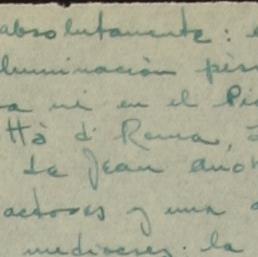 absolutamente: e
luminación pés
a ni en el Pic
ttà di Roma,
de Jean Anou
actores y una
mediocres. la